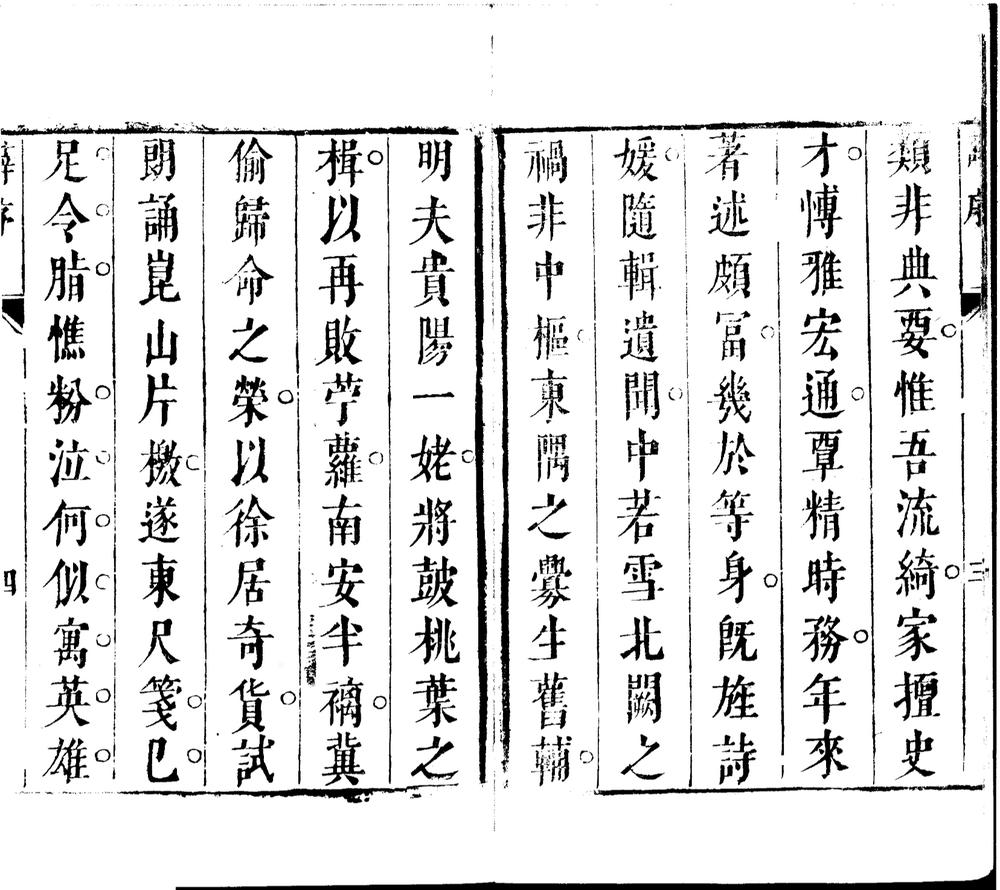 類非典要惟吾流綺家擅史
才愽雅宏通覃精時務年來
著述頗冨幾於等身旣旌詩
媛隨輯遺聞中若雪北闕之
禍非中樞東隅之釁生舊輔
明夫貴陽一姥將鼓桃葉之
楫以再敗苧蘿南安半褵冀
偷歸命之榮以徐居奇貨試
朗誦崑山片檄遂東尺箋已
足令脂憔粉泣何似寓英雄
四